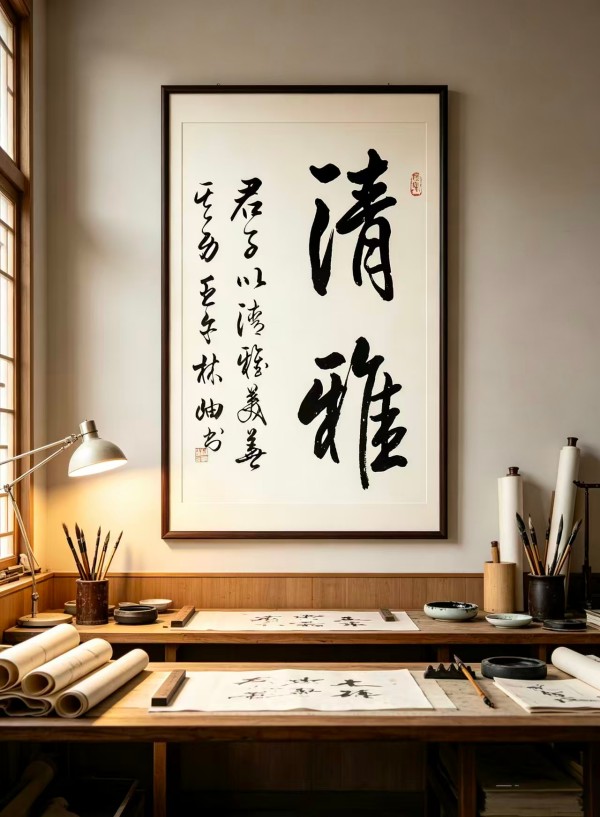 清雅
君子以清雅美善
其身壬午林岫书